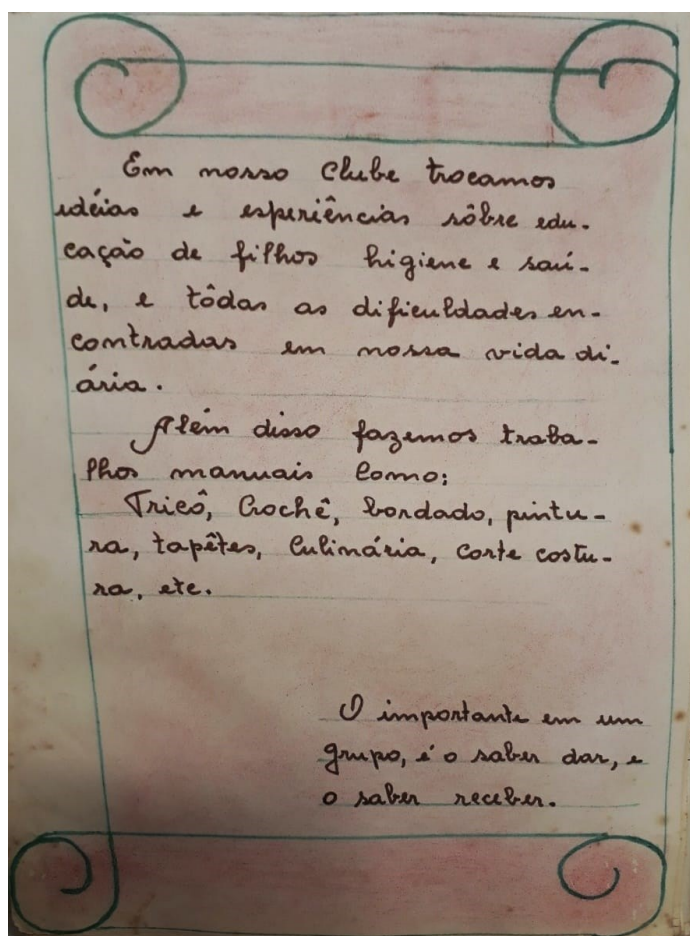 Em nosso Clube trocamos
idéias e esperiências sôbre edu-
cação de filhos higiene e saú-
de, e tôdas as dificuldades en-
contradas em nossa vida di-
ária.
Além disso fazemos traba-
lhos manuais Como:
Tricô, Crochê, bordado, pintu-
ra, tapêtes, Culinária, corte costu-
ra, etc.
O importante em um
grupo, é o saber dar, e
o saber receber.